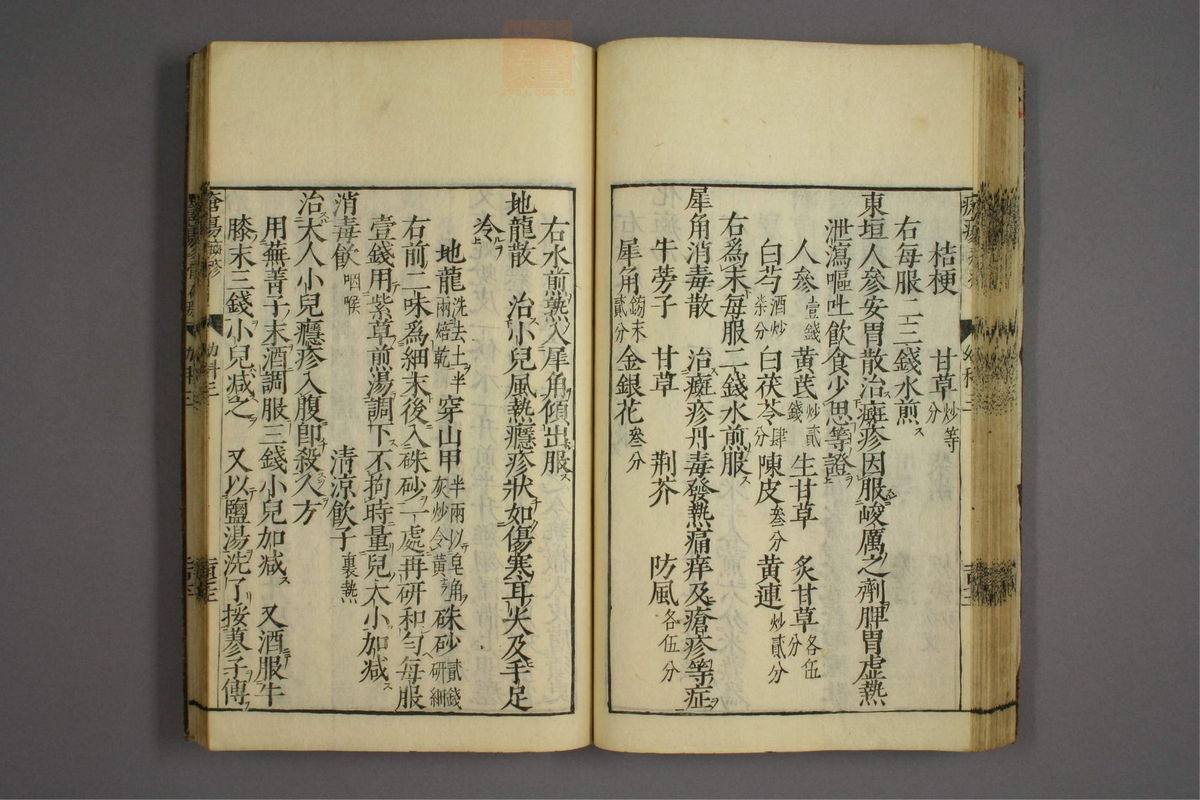 桔梗 甘草炒等分
右每服二三錢水煎ス
東垣人參安胃散治癍疹因服峻厲之劑脾胃虛熱
泄瀉嘔吐飲食少思等證
人參壹錢 黃芪炒貳錢 生甘草 炙甘草各伍分
白芍酒炒柒分 白茯苓肆分 陳皮叁分 黃連炒貳分
右爲末每服二錢水煎服
犀角消毒散 治癍疹丹毒發熱痛痒及瘡疹等症
牛蒡子 甘草 荆芥 防風各伍分
犀角鎊末貳分 金銀花叁分
右水煎熟入犀角傾出服
地龍散 治小兒風熱癮疹狀如傷寒耳尖及手足
冷
地龍洗去土半兩焙乾 穿山甲半兩以皂角灰炒令黃 硃砂貳錢研細
右前二味爲細末後入硃砂一處再研和勻每服
壹錢用紫草煎湯調下不拘時量兒大小加减
消毒飲咽喉 清凉飲子裏熱
治大人小兒癮疹入腹卽殺人方
用蕪菁子末酒調服三錢小兒加减 又酒服牛
膝末三錢小兒减之 又以鹽湯洗了挼蓼子傅
幼科三